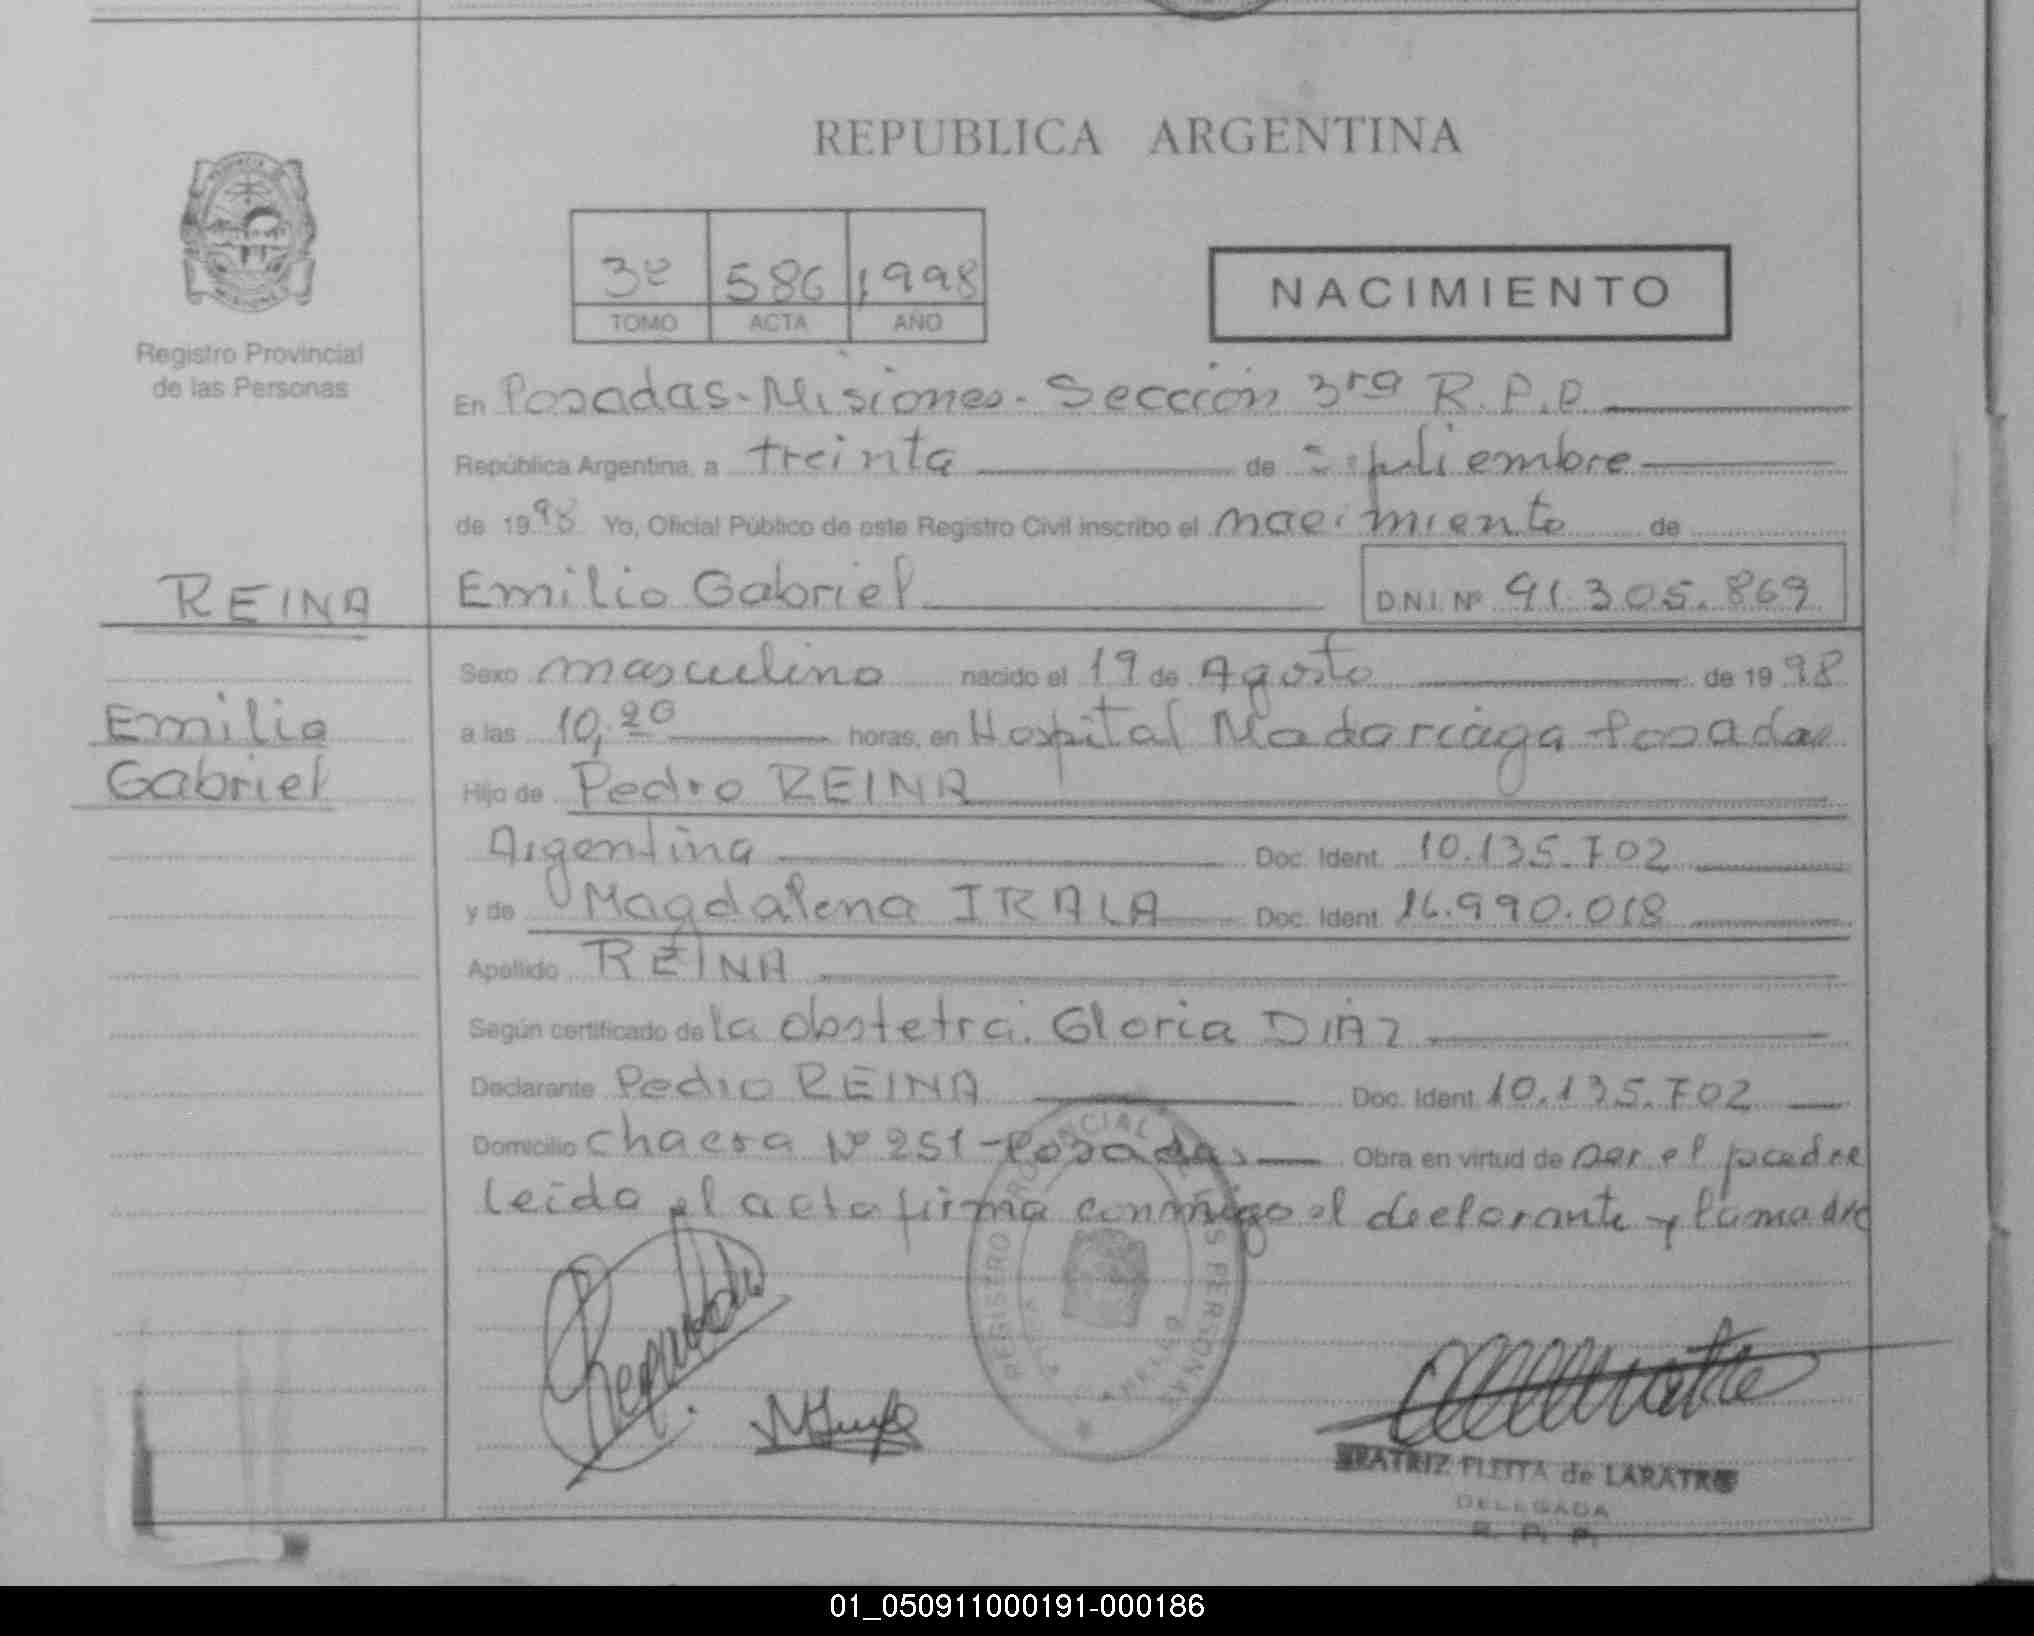 REPUBLICA ARGENTINA
3º 586 1998
TOMO ACTA AÑO
NACIMIENTO
Registro Provincial
de las Personas
En Posadas-Misiones-Sección 3ra R.P.P.
República Argentina, a treinta de Septiembre
de 1998 Yo, Oficial Público de este Registro Civil inscribo el nacimiento de
REINA
Emilio Gabriel
D.N.I. Nº 41.305.869
Emilio
Gabriel
Sexo masculino nacido el 19 de Agosto de 1998
a las 10,20 horas, en Hospital Madariaga Posadas
Hijo de Pedro REINA
Argentina Doc. Ident. 10.135.702
y de Magdalena IRALA Doc. Ident. 16.990.018
Apellido REINA
Según certificado de la obstetra. Gloria DIAZ
Declarante Pedro REINA Doc. Ident. 10.135.702
Domicilio Chacra Nº 251-Posadas Obra en virtud de ser el padre
Leida el acta firma conmigo el declarante y la madre
REGISTRO PROVINCIAL PERSONAS
BEATRIZ de LARATRO
DELEGADA
R. P. P.
01_050911000191-000186